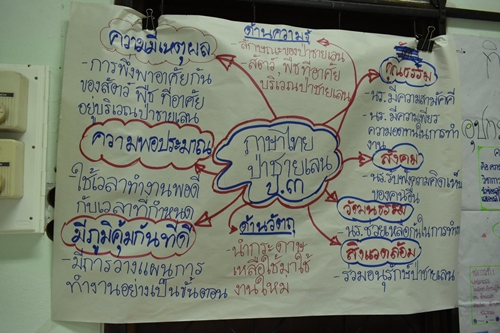 ด้านความรู้
- ลักษณะของป่าชายเลน
- สัตว์, พืช ที่อาศัย
บริเวณป่าชายเลน
ความมีเหตุผล
- การพึ่งพาอาศัยกัน
ของสัตว์ พืช ที่อาศัย
อยู่บริเวณป่าชายเลน
ความพอประมาณ
ใช้เวลาทำงานพอดี
กับเวลาที่กำหนด
มีภูมิคุ้มกันที่ดี
- มีการวางแผนการ
ทำงานอย่างเป็นขั้นตอน
ภาษาไทย
ป่าชายเลน
ป.๓
ด้านวัตถุ
- นำกระดาษ
เหลือใช้มาใช้
งานใหม่
คุณธรรม
- นร. มีความสามัคคี
- นร. มีความ
ความอดทนในการทำ
งาน
สังคม
- นร. รับฟังความคิดเห็น
ของคนอื่น
วัฒนธรรม
- นร. ช่วยเหลือกันในการทำ
สิ่งแวดล้อม
- ร่วมอนุรักษ์ป่าชายเลน